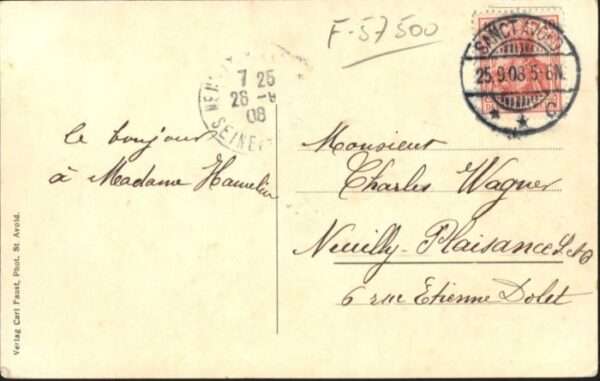 F-57500
SANCT AVOLD
25.9.08.5-6N.
* * C
7 25
26 -9
08
SEINE
le bonjour
à Madame Hamelin
Monsieur
Charles Wagner
Neuilly-Plaisance S.&O
6 rue Etienne Dolet
Verlag Carl Faust, Phot. St Avold.